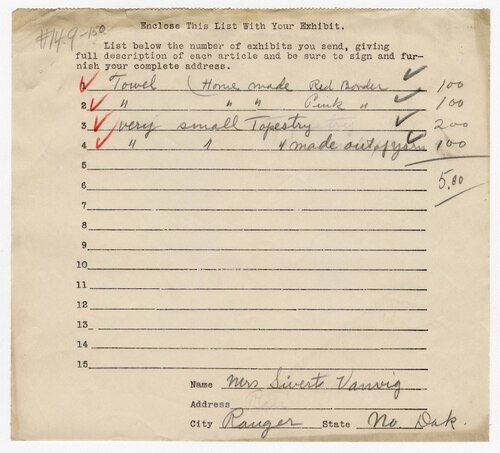 #149-150
Enclose This List With Your Exhibit.
List below the number of exhibits you send, giving
full description of each article and be sure to sign and fur-
nish your complete address.
1 Towel (Home made Red Border 100
2 " " " Pink " 100
3 very small Tapestry 200
4 " " " made out of yarn 100
5 5.00
6
7
8
9
10
11
12
13
14
15
Name Mrs Sivert Vanvig
Address
City Ranger State No. Dak.